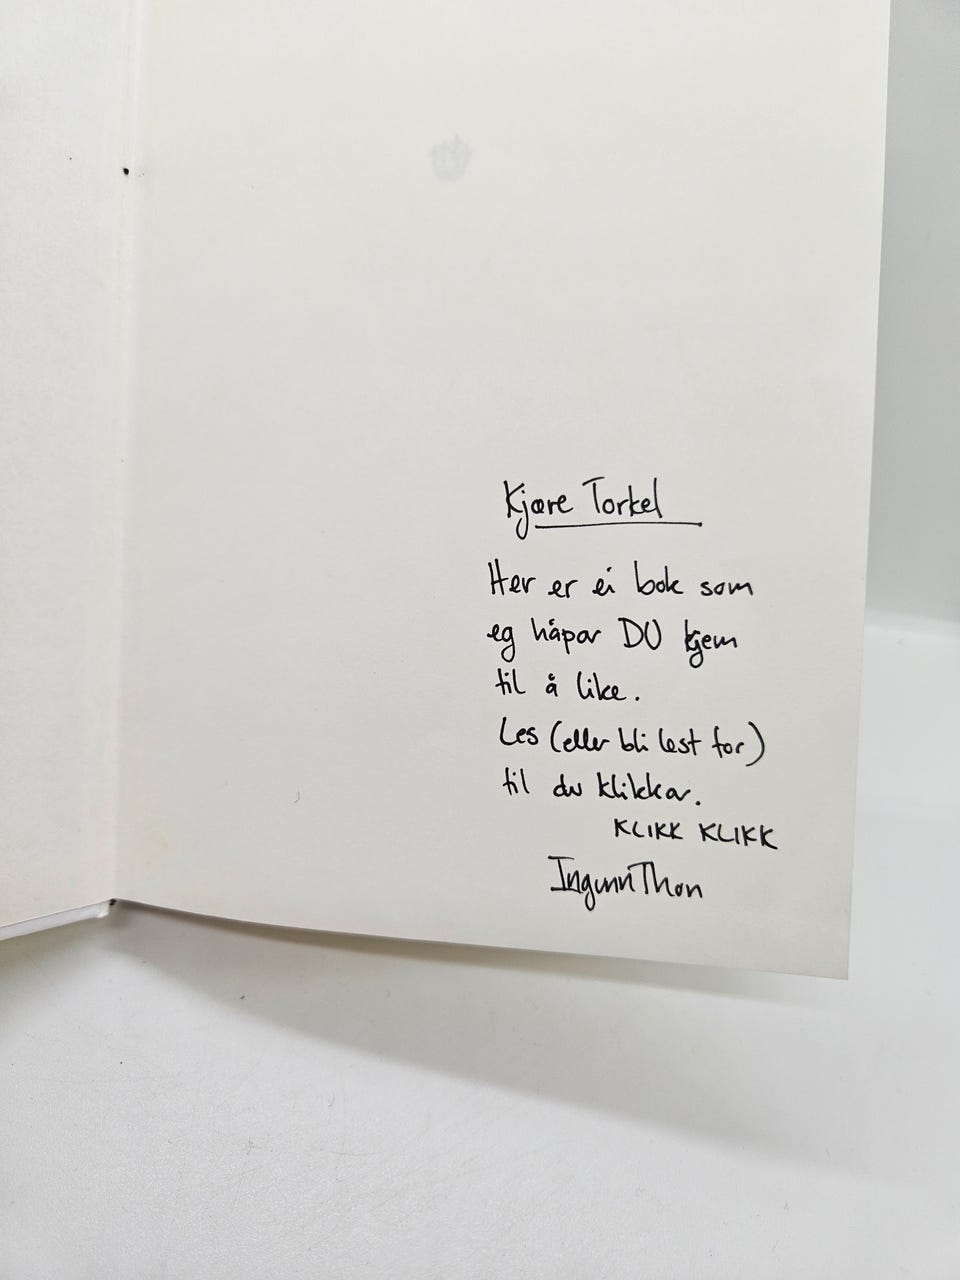 Kjære Torkel
Her er ei bok som
eg håpar DU kjem
til å like.
Les (eller bli lest for)
til du klikkar.
KLIKK KLIKK
Ingunn Thon